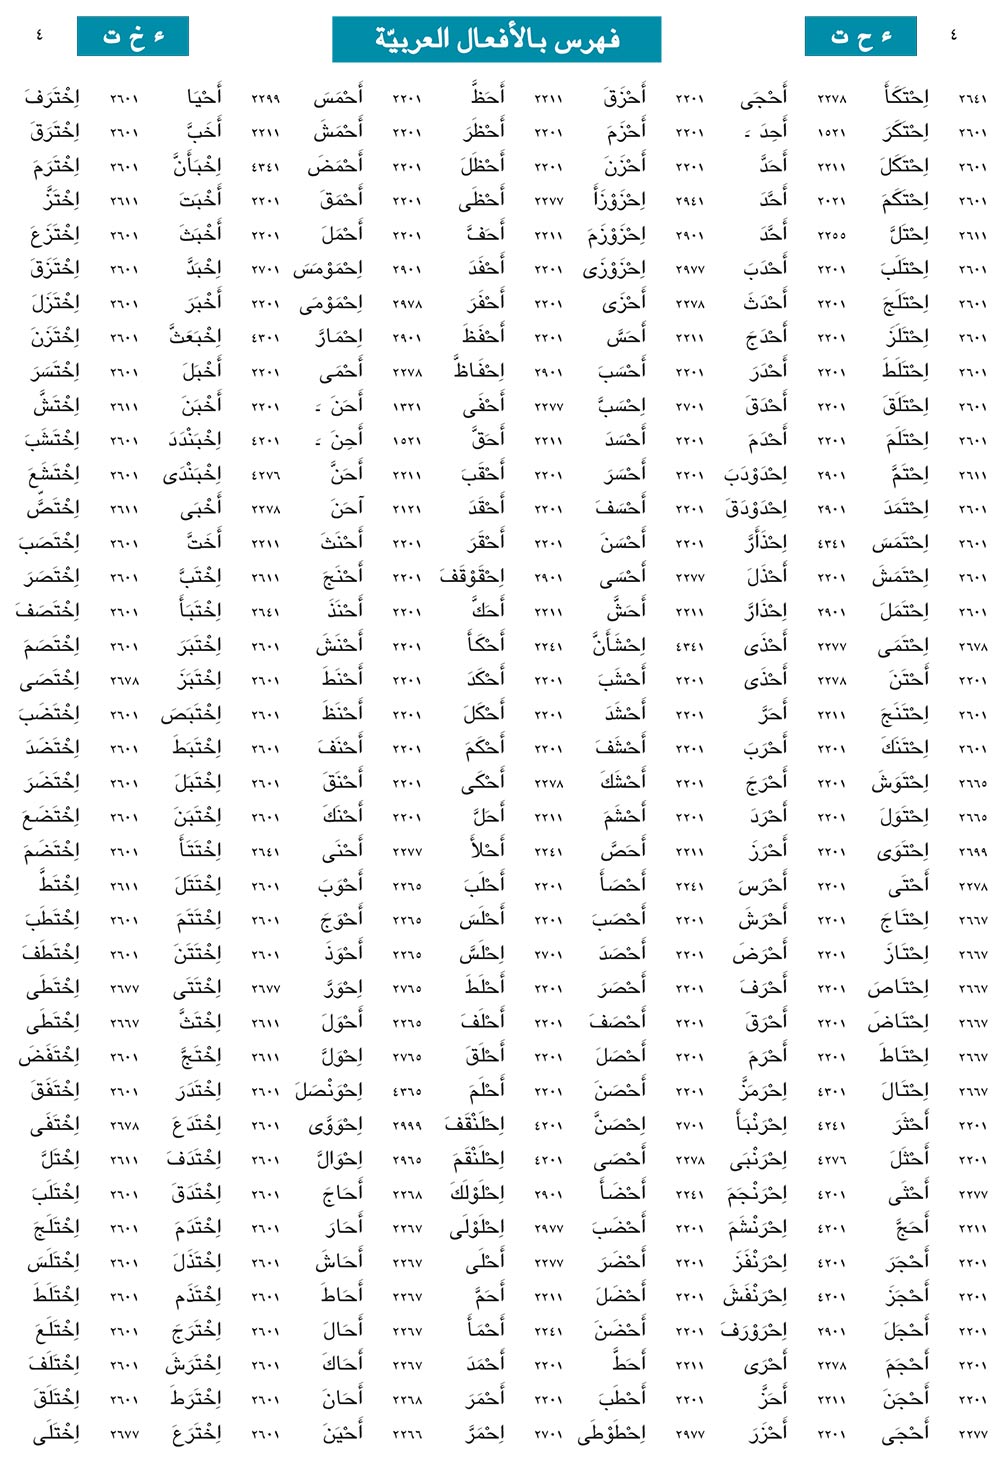 ٤ ء ح ت فهرس بالأفعال العربيّة ء خ ت ٤
٢٦٤١ اِحْتَكَأَ ٢٢٧٨ أَحْجَى ٢٢٠١ أَحْزَقَ ٢٢١١ أَحَظَّ ٢٢٠١ أَحْمَسَ ٢٢٩٩ أَحْيَا ٢٦٠١ اِخْتَرَفَ
٢٦٠١ اِحْتَكَرَ ١٥٢١ أَحِدَ ـَ ٢٢٠١ أَحْزَمَ ٢٢٠١ أَحْظَرَ ٢٢٠١ أَحْمَشَ ٢٢١١ أَخَبَّ ٢٦٠١ اِخْتَرَقَ
٢٦٠١ اِحْتَكَلَ ٢٢١١ أَحَدَّ ٢٢٠١ أَحْزَنَ ٢٢٠١ أَحْظَلَ ٢٢٠١ أَحْمَضَ ٤٣٤١ اِخْبَأَنَّ ٢٦٠١ اِخْتَرَمَ
٢٦٠١ اِحْتَكَمَ ٢٠٢١ أَحَّدَ ٢٩٤١ اِحْزَوْزَأَ ٢٢٧٧ أَحْظَى ٢٢٠١ أَحْمَقَ ٢٢٠١ أَخْبَتَ ٢٦١١ اِخْتَزَّ
٢٦١١ اِحْتَلَّ ٢٢٥٥ أَحَّدَ ٢٩٠١ اِحْزَوْزَمَ ٢٢١١ أَحَفَّ ٢٢٠١ أَحْمَلَ ٢٢٠١ أَخْبَثَ ٢٦٠١ اِخْتَزَعَ
٢٦٠١ اِحْتَلَبَ ٢٢٠١ أَحْدَبَ ٢٩٧٧ اِحْزَوْزَى ٢٢٠١ أَحْفَدَ ٢٩٠١ اِحْمَوْمَسَ ٢٧٠١ اِخْبَدَّ ٢٦٠١ اِخْتَزَقَ
٢٦٠١ اِحْتَلَجَ ٢٢٠١ أَحْدَثَ ٢٢٧٨ أَحْزَى ٢٢٠١ أَحْفَرَ ٢٩٧٨ اِحْمَوْمَى ٢٢٠١ أَخْبَرَ ٢٦٠١ اِخْتَزَلَ
٢٦٠١ اِحْتَلَزَ ٢٢٠١ أَحْدَجَ ٢٢١١ أَحَسَّ ٢٢٠١ أَحْفَظَ ٢٩٠١ اِحْمَارَّ ٤٣٠١ اِخْبَعَثَّ ٢٦٠١ اِخْتَزَنَ
٢٦٠١ اِحْتَلَطَ ٢٢٠١ أَحْدَرَ ٢٢٠١ أَحْسَبَ ٢٩٠١ اِحْفَاظَّ ٢٢٧٨ أَحْمَى ٢٢٠١ أَخْبَلَ ٢٦٠١ اِخْتَسَرَ
٢٦٠١ اِحْتَلَقَ ٢٢٠١ أَحْدَقَ ٢٧٠١ اِحْسَبَّ ٢٢٧٧ أَحْفَى ١٣٢١ أَحَنَ ـَ ٢٢٠١ أَخْبَنَ ٢٦١١ اِخْتَشَّ
٢٦٠١ اِحْتَلَمَ ٢٢٠١ أَحْدَمَ ٢٢٠١ أَحْسَدَ ٢٢١١ أَحَقَّ ١٥٢١ أَحِنَ ـَ ٤٢٠١ اِخْبَنْدَدَ ٢٦٠١ اِخْتَشَبَ
٢٦١١ اِحْتَمَّ ٢٩٠١ اِحْدَوْدَبَ ٢٢٠١ أَحْسَرَ ٢٢٠١ أَحْقَبَ ٢٢١١ أَحَنَّ ٤٢٧٦ اِخْبَنْدَى ٢٦٠١ اِخْتَشَعَ
٢٦٠١ اِحْتَمَدَ ٢٩٠١ اِحْدَوْدَقَ ٢٢٠١ أَحْسَفَ ٢٢٠١ أَحْقَدَ ٢١٢١ آحَنَ ٢٢٧٨ أَخْبَى ٢٦١١ اِخْتَصَّ
٢٦٠١ اِحْتَمَسَ ٤٣٤١ اِحْذَأَرَّ ٢٢٠١ أَحْسَنَ ٢٢٠١ أَحْقَرَ ٢٢٠١ أَحْنَثَ ٢٢١١ أَخَتَّ ٢٦٠١ اِخْتَصَبَ
٢٦٠١ اِحْتَمَشَ ٢٢٠١ أَحْذَلَ ٢٢٧٧ أَحْسَى ٢٩٠١ اِحْقَوْقَفَ ٢٢٠١ أَحْنَجَ ٢٦١١ اِخْتَبَّ ٢٦٠١ اِخْتَصَرَ
٢٦٠١ اِحْتَمَلَ ٢٩٠١ اِحْذَارَّ ٢٢١١ أَحَشَّ ٢٢١١ أَحَكَّ ٢٢٠١ أَحْنَذَ ٢٦٤١ اِخْتَبَأَ ٢٦٠١ اِخْتَصَفَ
٢٦٧٨ اِحْتَمَى ٢٢٧٧ أَحْذَى ٤٣٤١ اِحْشَأَنَّ ٢٢٤١ أَحْكَأَ ٢٢٠١ أَحْنَشَ ٢٦٠١ اِخْتَبَرَ ٢٦٠١ اِخْتَصَمَ
٢٢٠١ أَحْتَنَ ٢٢٧٨ أَحْذَى ٢٢٠١ أَحْشَبَ ٢٢٠١ أَحْكَدَ ٢٢٠١ أَحْنَطَ ٢٦٠١ اِخْتَبَزَ ٢٦٧٨ اِخْتَصَى
٢٦٠١ اِحْتَنَجَ ٢٢١١ أَحَرَّ ٢٢٠١ أَحْشَدَ ٢٢٠١ أَحْكَلَ ٢٢٠١ أَحْنَظَ ٢٦٠١ اِخْتَبَصَ ٢٦٠١ اِخْتَضَبَ
٢٦٠١ اِحْتَنَكَ ٢٢٠١ أَحْرَبَ ٢٢٠١ أَحْشَفَ ٢٢٠١ أَحْكَمَ ٢٢٠١ أَحْنَفَ ٢٦٠١ اِخْتَبَطَ ٢٦٠١ اِخْتَضَدَ
٢٦٦٥ اِحْتَوَشَ ٢٢٠١ أَحْرَجَ ٢٢٠١ أَحْشَكَ ٢٢٧٨ أَحْكَى ٢٢٠١ أَحْنَقَ ٢٦٠١ اِخْتَبَلَ ٢٦٠١ اِخْتَضَرَ
٢٦٦٥ اِحْتَوَلَ ٢٢٠١ أَحْرَدَ ٢٢٠١ أَحْشَمَ ٢٢١١ أَحَلَّ ٢٢٠١ أَحْنَكَ ٢٦٠١ اِخْتَبَنَ ٢٦٠١ اِخْتَضَعَ
٢٦٩٩ اِحْتَوَى ٢٢٠١ أَحْرَزَ ٢٢١١ أَحَصَّ ٢٢٤١ أَحْلأَ ٢٢٧٧ أَحْنَى ٢٦٤١ اِخْتَتَأَ ٢٦٠١ اِخْتَضَمَ
٢٢٧٨ أَحْتَى ٢٢٠١ أَحْرَسَ ٢٢٤١ أَحْصَأَ ٢٢٠١ أَحْلَبَ ٢٢٦٥ أَحْوَبَ ٢٦٠١ اِخْتَتَلَ ٢٦١١ اِخْتَطَّ
٢٦٦٧ اِحْتَاجَ ٢٢٠١ أَحْرَشَ ٢٢٠١ أَحْصَبَ ٢٢٠١ أَحْلَسَ ٢٢٦٥ أَحْوَجَ ٢٦٠١ اِخْتَتَمَ ٢٦٠١ اِخْتَطَبَ
٢٦٦٧ اِحْتَازَ ٢٢٠١ أَحْرَضَ ٢٢٠١ أَحْصَدَ ٢٧٠١ اِحْلَسَّ ٢٢٦٥ أَحْوَذَ ٢٦٠١ اِخْتَتَنَ ٢٦٠١ اِخْتَطَفَ
٢٦٦٧ اِحْتَاصَ ٢٢٠١ أَحْرَفَ ٢٢٠١ أَحْصَرَ ٢٢٠١ أَحْلَطَ ٢٧٦٥ اِحْوَرَّ ٢٦٧٧ اِخْتَتَى ٢٦٧٧ اِخْتَطَى
٢٦٦٧ اِحْتَاضَ ٢٢٠١ أَحْرَقَ ٢٢٠١ أَحْصَفَ ٢٢٠١ أَحْلَفَ ٢٢٦٥ أَحْوَلَ ٢٦١١ اِخْتَثَّ ٢٦٦٧ اِخْتَطَى
٢٦٦٧ اِحْتَاطَ ٢٢٠١ أَحْرَمَ ٢٢٠١ أَحْصَلَ ٢٢٠١ أَحْلَقَ ٢٧٦٥ اِحْوَلَّ ٢٦١١ اِخْتَجَّ ٢٦٠١ اِخْتَفَضَ
٢٦٦٧ اِحْتَالَ ٤٣٠١ اِحْرَمَزَّ ٢٢٠١ أَحْصَنَ ٢٢٠١ أَحْلَمَ ٤٣٦٥ اِحْوَنْصَلَ ٢٦٠١ اِخْتَدَرَ ٢٦٠١ اِخْتَفَقَ
٢٢٠١ أَحْثَرَ ٤٢٤١ اِحْرَنْبَأَ ٢٧٠١ اِحْصَنَّ ٤٢٠١ اِحْلَنْقَفَ ٢٩٩٩ اِحْوَوَّى ٢٦٠١ اِخْتَدَعَ ٢٦٧٨ اِخْتَفَى
٢٢٠١ أَحْثَلَ ٤٢٧٦ اِحْرَنْبَى ٢٢٧٨ أَحْصَى ٤٢٠١ اِحْلَنْقَمَ ٢٩٦٥ اِحْوَالَّ ٢٦٠١ اِخْتَدَفَ ٢٦١١ اِخْتَلَّ
٢٢٧٧ أَحْثَى ٤٢٠١ اِحْرَنْجَمَ ٢٢٤١ أَحْضَأَ ٢٩٠١ اِحْلَوْلَكَ ٢٢٦٨ أَحَاجَ ٢٦٠١ اِخْتَدَقَ ٢٦٠١ اِخْتَلَبَ
٢٢١١ أَحَجَّ ٤٢٠١ اِحْرَنْشَمَ ٢٢٠١ أَحْضَبَ ٢٩٧٧ اِحْلَوْلَى ٢٢٦٧ أَحَارَ ٢٦٠١ اِخْتَدَمَ ٢٦٠١ اِخْتَلَجَ
٢٢٠١ أَحْجَرَ ٤٢٠١ اِحْرَنْفَزَ ٢٢٠١ أَحْضَرَ ٢٢٧٧ أَحْلَى ٢٢٦٧ أَحَاشَ ٢٦٠١ اِخْتَذَلَ ٢٦٠١ اِخْتَلَسَ
٢٢٠١ أَحْجَزَ ٤٢٠١ اِحْرَنْفَشَ ٢٢٠١ أَحْضَلَ ٢٢١١ أَحَمَّ ٢٢٦٧ أَحَاطَ ٢٦٠١ اِخْتَذَم ٢٦٠١ اِخْتَلَطَ
٢٢٠١ أَحْجَلَ ٢٩٠١ اِحْرَوْرَفَ ٢٢٠١ أَحْضَنَ ٢٢٤١ أَحْمَأَ ٢٢٦٧ أَحَالَ ٢٦٠١ اِخْتَرَجَ ٢٦٠١ اِخْتَلَعَ
٢٢٠١ أَحْجَمَ ٢٢٧٨ أَحْرَى ٢٢١١ أَحَطَّ ٢٢٠١ أَحْمَدَ ٢٢٦٧ أَحَاكَ ٢٦٠١ اِخْتَرَشَ ٢٦٠١ اِخْتَلَفَ
٢٢٠١ أَحْجَنَ ٢٢١١ أَحَزَّ ٢٢٠١ أَحْطَبَ ٢٢٠١ أَحْمَرَ ٢٢٦٨ أَحَانَ ٢٦٠١ اِخْتَرَطَ ٢٦٠١ اِخْتَلَقَ
٢٢٧٧ أَحْجَى ٢٢٠١ أَحْزَرَ ٢٩٧٧ اِحْطَوْطَى ٢٧٠١ اِحْمَرَّ ٢٢٦٦ أَحْيَنَ ٢٦٠١ اِخْتَرَعَ ٢٦٧٧ اِخْتَلَى